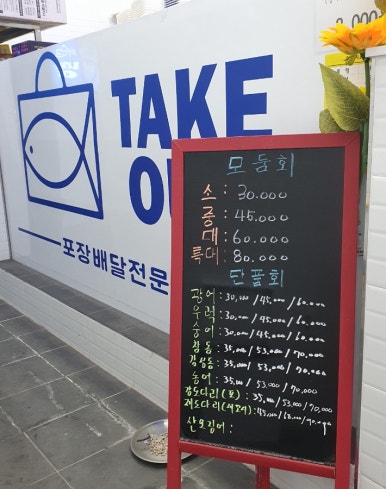 TAKE
포장배달전문
모둠회
소 : 30.000
중 : 45.000
대 : 60.000
특대 : 80.000
단품회
광어 : 30,000 / 45,000 / 60.000
우럭 : 30.000 / 45.000 / 60.000
숭어 : 30.000 / 45.000 / 60.000
참돔 : 35,000 / 53,000 / 70,000
감성돔 : 35,000 / 53,000 / 70,000
농어 : 35,000 / 53,000 / 70,000
강도다리(포) : 35,000 / 53,000 / 70,000
산오징어 :